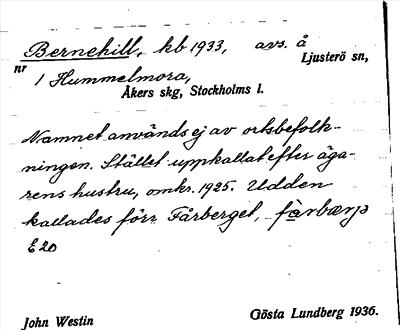 Bernehill, kb 1933, avs. å
Ljusterö sn,
nr
1 Hummelmora,
Åkers skg, Stockholms l.
Namnet används ej av ortsbefolk-
ningen. Stället uppkallat efter äga-
rens hustru, omkr. 1925. Udden
kallades förr Fårberget,
E20
John Westin
Gösta Lundberg 1936.